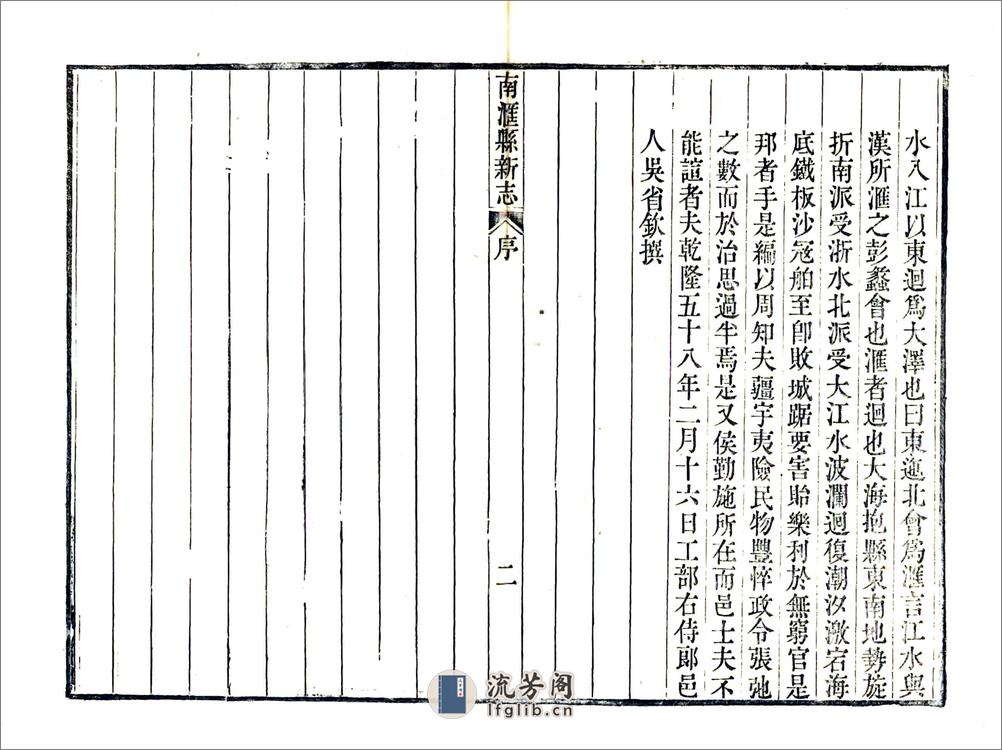 水入江以東迴爲大澤也曰東迤北會爲滙言江水與
漢所滙之彭蠡會也滙者迴也大海抱縣東南地勢旋
折南派受浙水北派受大江水波瀾迴復潮汐激宕海
底鐵板沙冦舶至卽敗城踞要害貽樂利於無窮官是
邦者手是編以周知夫疆宇夷險民物豐悴政令張弛
之數而於治思過半焉是又侯勤施所在而邑士夫不
能諠者夫乾隆五十八年二月十六日工部右侍郞邑
人吳省欽撰
南滙縣新志
序
二
流芳阁
lfglib.cn